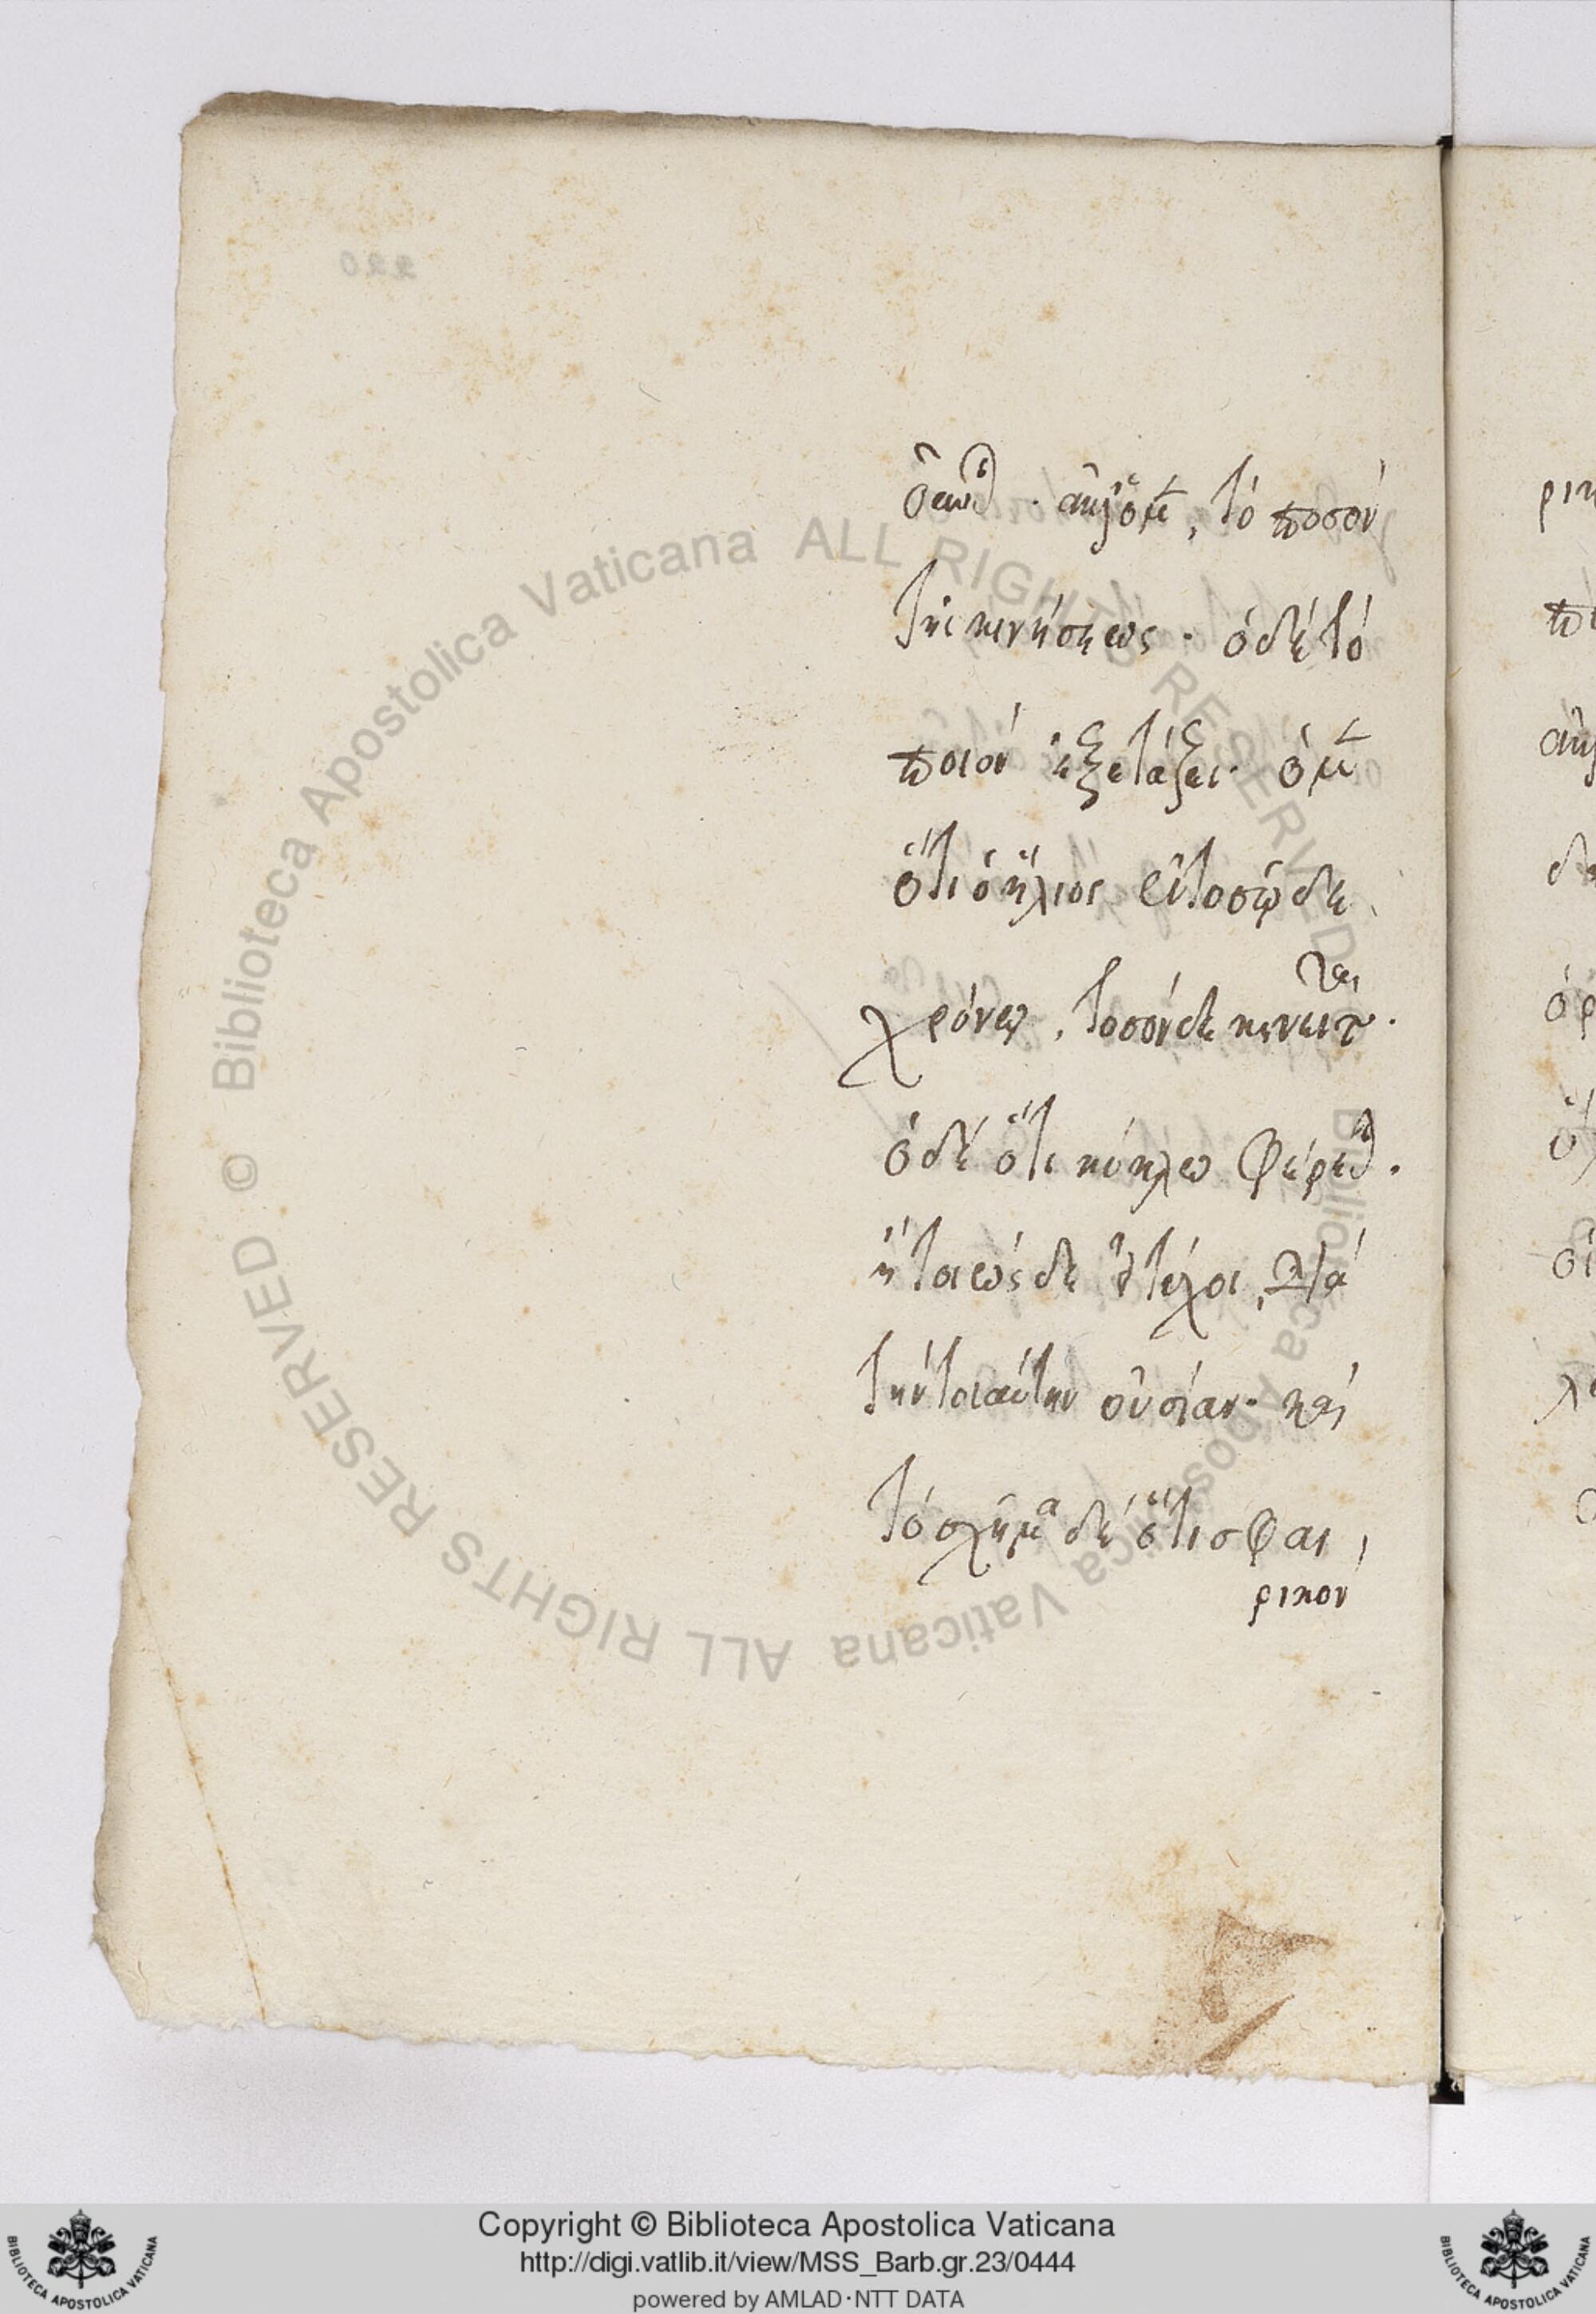 τὸ ποσὸν
τῆς κινήσεως · ὁ δὲ τὸ
ποιὸν ἐξετάζει · ὁ μὲν
ὅτι ὁ ἥλιος ἐν τοσῷδε
χρόνῳ, τοσόνδε κινεῖται ·
ὁ δὲ ὅτι κύκλω φέρεται ·
ἢ τοιῶςδε
τὴν τοιαύτην οὐσίαν · καὶ
τὸ σχῆμα δὲ ὅτι σφαι
ρικὸν
ρικ
220
Biblioteca Apostolica Vaticana ALL RIGHTS RESERVED ©
Biblioteca Apostolica Vaticana ALL RIGHTS RESERVED ©
Copyright © Biblioteca Apostolica Vaticana
http://digi.vatlib.it/view/MSS_Barb.gr.23/0444
powered by AMLAD·NTT DATA
BIBLIOTECA APOSTOLICA VATICANA
BIBLIOTECA APOSTOLICA VATICANA